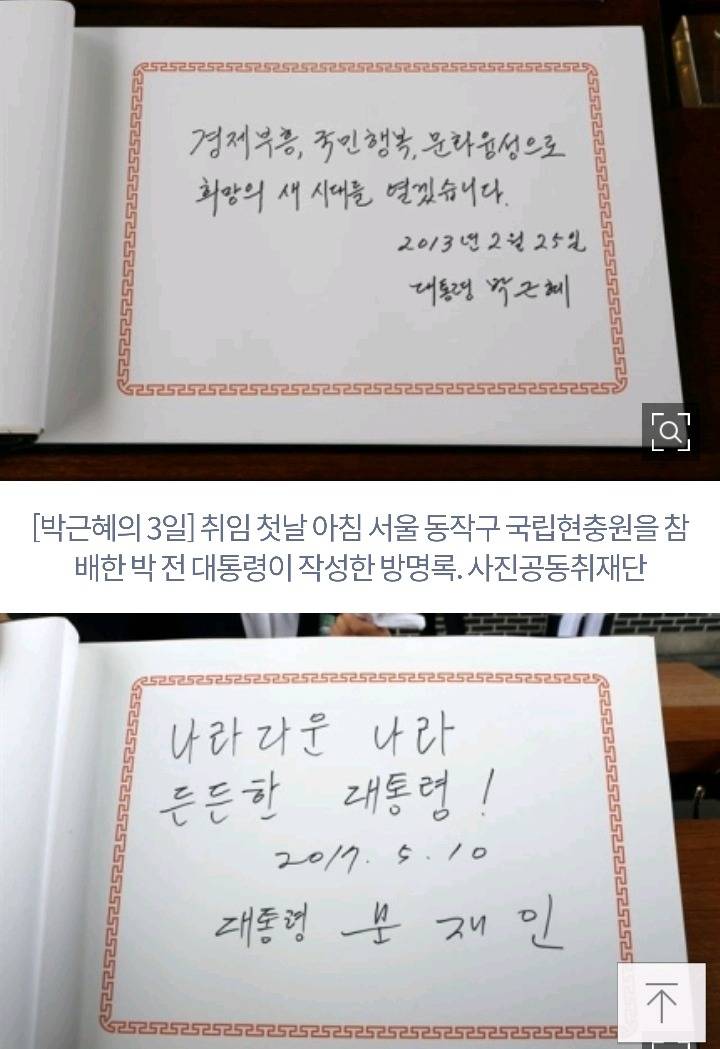 경제부흥, 국민행복, 문화융성으로
희망의 새 시대를 열겠습니다.
2013년 2월 25일
대통령 박근혜
[박근혜의 3일] 취임 첫날 아침 서울 동작구 국립현충원을 참
배한 박 전 대통령이 작성한 방명록. 사진공동취재단
나라다운 나라
든든한 대통령!
2017. 5. 10
대통령 문재인